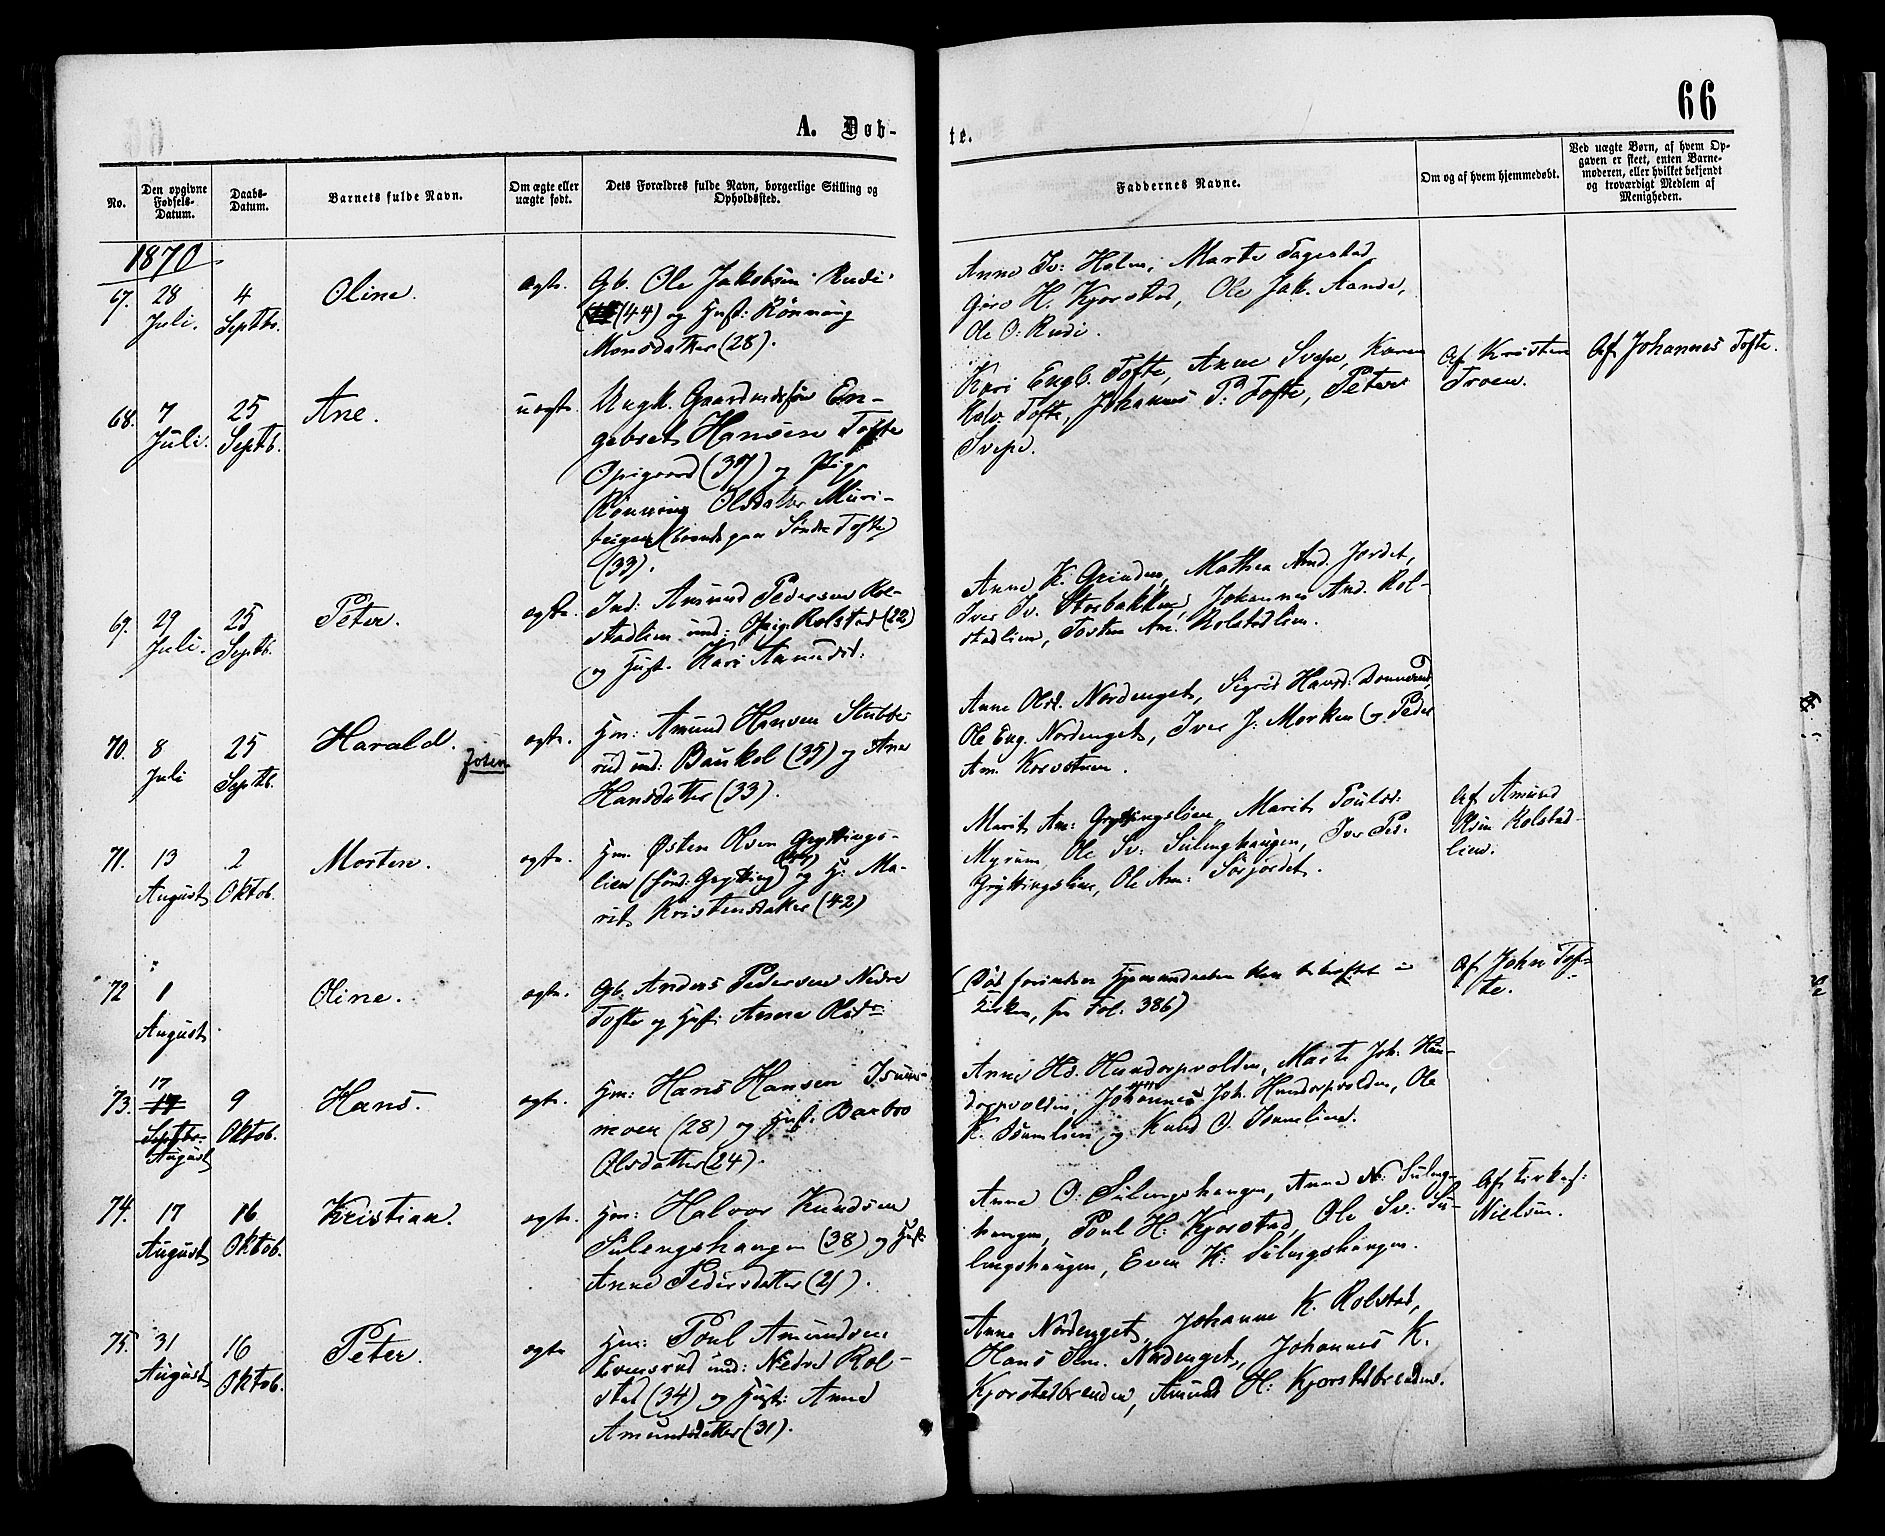 66
A. Døb-
te.
No.
Den opgivne Fødsels-Datum.
Daabs-Datum.
Barnets fulde Navn.
Om ægte eller uægte født.
Dets Forældres fulde Navn, borgerlige Stilling og Opholdssted.
Faddernes Navne.
Om og af hvem hjemmedøbt.
Ved uægte Børn, af hvem Opgaven er skeet, enten Barnemoderen, eller hvilket bekjendt og troværdigt Medlem af Menigheden.
1870
67. 28 Juli. 4 Septbr. Oline. ægte.
Gb. Ole Jakobsen Rudi
(44) og Hust: Rønnaug
Monsdatter (28).
Anne Iv: Holm, Marte Fagestad
H. Kjorstad, Ole Jak. Aande,
Ole O: Rudi.
68. 7 Juli. 25 Septb. Ane. uægte.
Ungk. Gaardmandssøn En-
gebret Hansen Tofte
Opigaard (37) og Pige
Rønnaug Olsdatter Muri-
haugen (boende paa Søndre Tofte)
(33).
Kari Engb. Tofte, Anne Svepe, Karen
Halv. Tofte, Johannes P: Tofte, Peter
Svepe.
Af Kristen
Troen.
Af Johannes Tofte.
69. 29 Juli. 25 Septb. Peter. ægte.
Ind: Amund Pedersen Rol-
stadlien und: Opig. Rolstad (22)
og Hust. Kari Amundsd.
Anne K. Grinden, Mathea And. Jordet,
Iver Iv. Storbakken, Johannes And. Rol-
stadlien, Torsten Am. Rolstadlien.
70. 8 Juli 25 Septb. Harald. Joten ægte.
Hm: Amund Hansen Stubbe-
rud und: Baukol (35) og Ane
Hansdatter (33).
Anne Olsd. Nordenget, Sigrid Hansd:
Ole Eng. Nordenget, Iver J. Morken og Peder
Am. Korvetuen.
71. 13 August 2 Oktob. Morten. ægte.
Hm. Østen Olsen Gryttings-
lien (Sønd: Grytting) og H: Ma-
rit Kristensdatter (42)
Marit Am: Gryttingslien, Marit Poulsd:
Myrum, Ole Sv: Sülenghaugen, Iver Ped.
Gryttingslien, Ole Am: Sørjordet.
Af Amund
Olsen Rolstad-
lien.
72 1 August Oline. ægte.
Gb. Anders Pedersen Nedre
Tofte og Hust: Anne Olsdr
(Død forinden Hjemmedaaben kan bekræftet i
Kirken, se Fol. 386)
Af John Tof-
te.
73. 17 Septbr. 17 August 9 Oktob. Hans. ægte.
Hm: Hans Hansen Isum-
moen (28) og Hust. Barbro
Olsdatter (24).
Anne Hd. Hundorpvolden, Marte Joh. Hun-
dorpvolden, Johannes Joh. Hundorpvolden, Ole
K. Isumlien og Knud O. Isumlien.
74. 17 August 16 Oktob. Kristian. ægte.
Hm: Halvor Knudsen
Sülengshaugen (38) og Hust:
Anne Pedersdatter (21).
Anne O: Sülengshaugen, Anne N: Süleng-
haugen, Poul H: Kjorstad, Ole Sv: Sü-
lengshaugen, Even K: Sülengshaugen.
Af Kirkes:
Nielsen.
75. 31 August 16 Oktob. Peter. ægte
Hm: Poul Amundsen
Evensrud und: Nedre Rol-
stad (34) og Hust: Anne
Amundsdatter (31).
Anne Nordenget, Johanne K. Rolstad,
Hans Am. Nordenget, Johannes K.
Kjorstadbrenden, Amund H: Kjorstadbrenden.